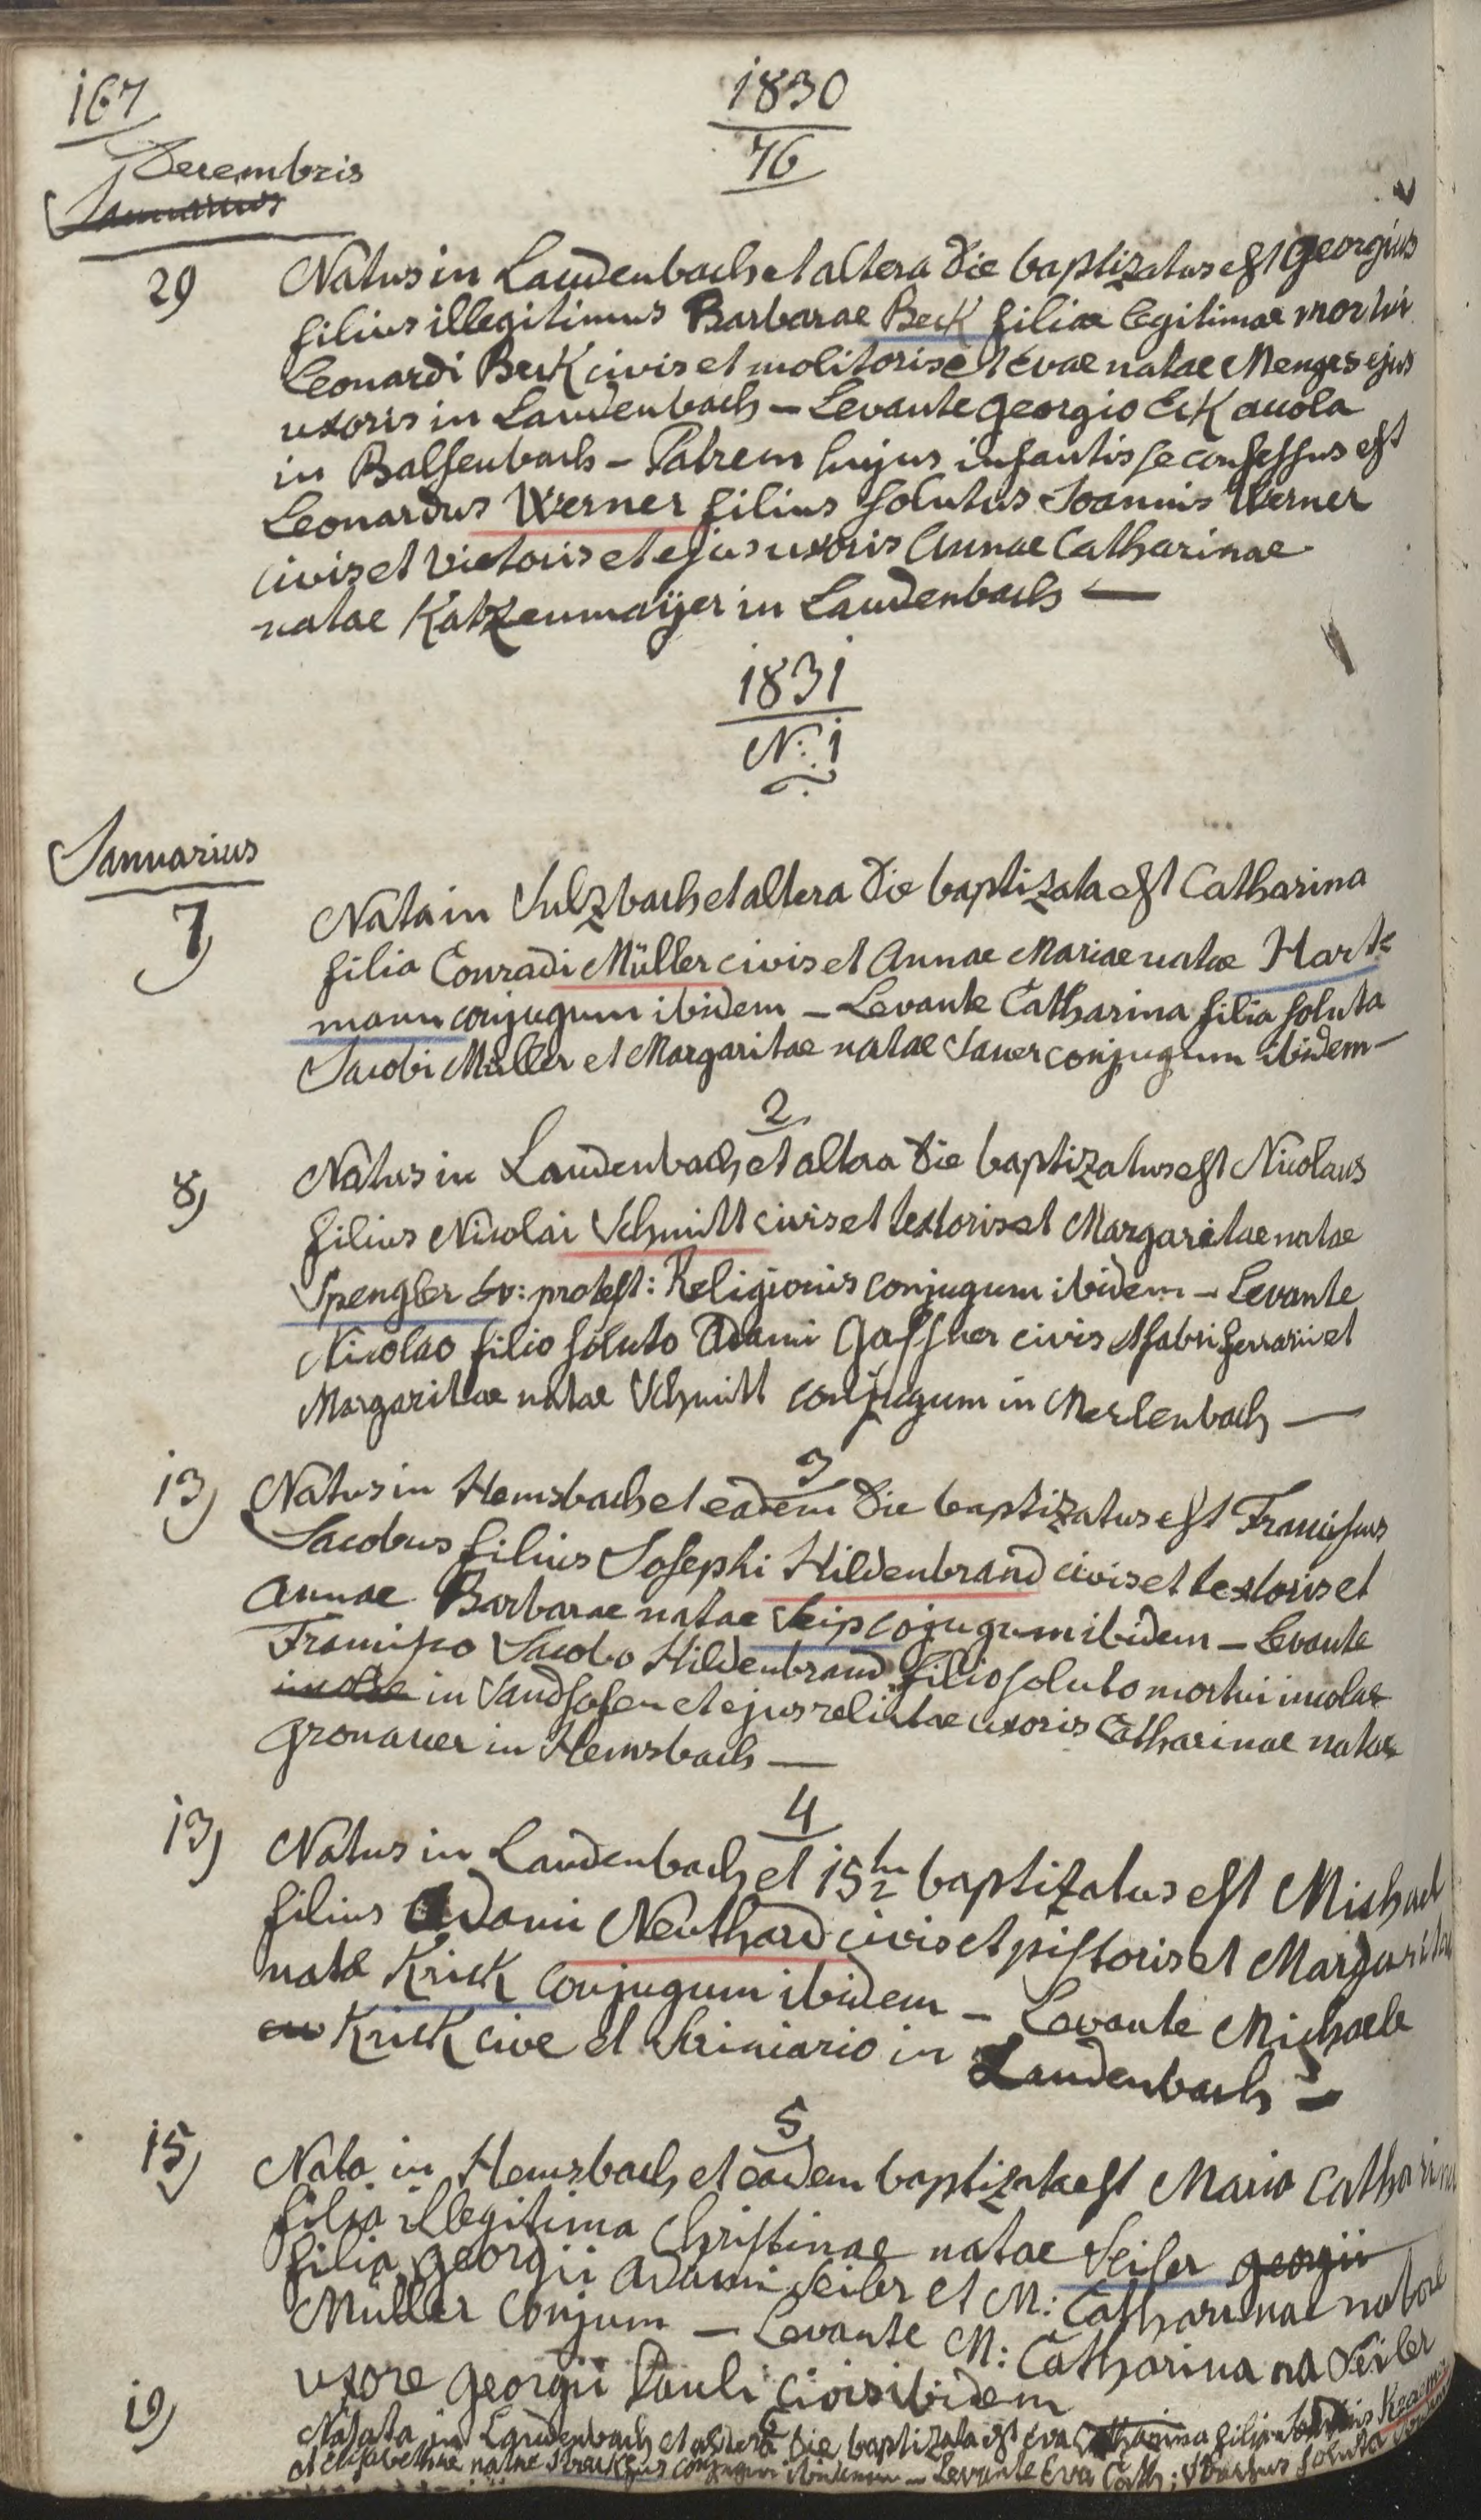 167
1830
76
Decembris
Januarius
29 Natus in Laudenbach et altera die baptizatus est Georgius
filius illegitimus Barbarae Beck filiae legitimae mortui
Leonardi Beck civis et molitoris et Evae natae Menges ejus
uxoris in Laudenbach – Levante Georgio Eck accola
in Balsenbach – Patrem hujus infantis se confessus est
Leonardus Werner filius solutus Joannis Werner
civis et vietoris et ejus uxoris Annae Catharinae
natae Katzenmaÿer in Laudenbach —
1831
N: 1
Januarius
7) Nata in Sulzbach et altera die baptizata est Catharina
filia Conradi Müller civis et Annae Mariae natae Hart=
mann conjugum ibidem – Levante Catharina filia soluta
Jacobi Müller et Margaritae natae Sauer conjugum ibidem –
2
8) Natus in Laudenbach et altera die baptizatus est Nicolaus
filius Nicolai Schmitt civis et textoris et Margaritae natae
Spengler Ev: protest: Religionis conjugum ibidem – Levante
Nicolao filio soluto Adami Gassner civis et fabri ferrarii et
Margaritae natae Schmitt conjugum in Merlenbach —
3
13) Natus in Hemsbach et eadem die baptizatus est Franciscus
Jacobus filius Josephi Hildenbrand civis et textoris et
Annae Barbarae natae Seip cojugum ibidem – Levante
Francisco Jacobo Hildenbrand filio soluto mortui incolae
incolae in Sandhofen et ejus relictae uxoris Catharinae natae
Gronauer in Hemsbach —
4
13) Natus in Laudenbach et 15ta baptizatus est Michael
filius Adami Neuthard civis et pistoris et Margarita
nata Krick conjugum ibidem – Levante Michaele
Krick cive et scriniario in Laudenbach –
5
15) Nata in Hemsbach et eadem baptizata est Maria Catharina
filia illegitima Christinae natae Seiler Georgii
filia Georgii Adami Seiler et M: Catharinae natae
Müller conjum – Levante M: Catharina na Seiler
uxore Georgii Pauli civis ibidem
6
19) Natata in Laudenbach et altera die baptizata est Eva Catharina filia
et Elisabethae natae conjugum ibidem – Levante Eva Cath: soluta